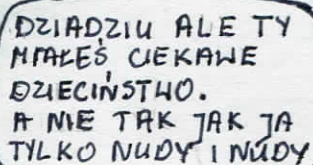 DZIADZIU ALE TY
MIAŁEŚ CIEKAWE
DZIECIŃSTWO.
A NIE TAK JAK JA
TYLKO NUDY I NUDY